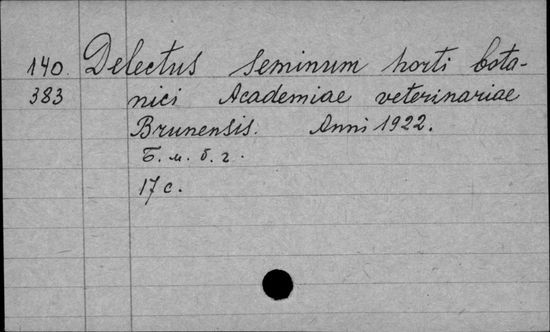 140. Delectus seminum horti bota-
383 nici Academiae veterinariae
Brunensis. Anni 1922.
Б. м. б. г.
17 с.